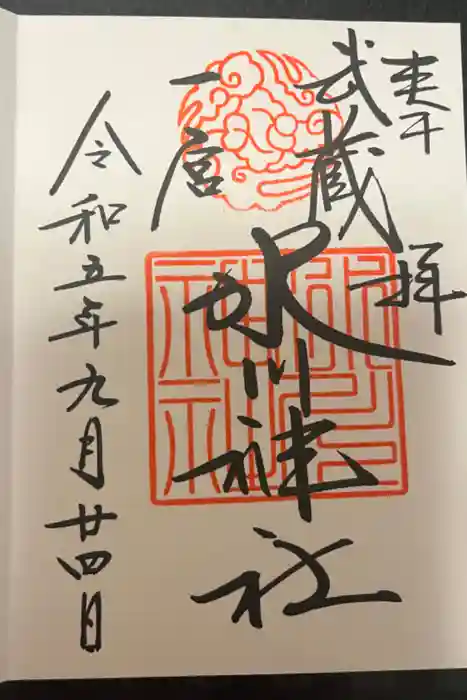 奉拝
武蔵
一宮
氷川神社
令和五年九月廿四日
氷川神社